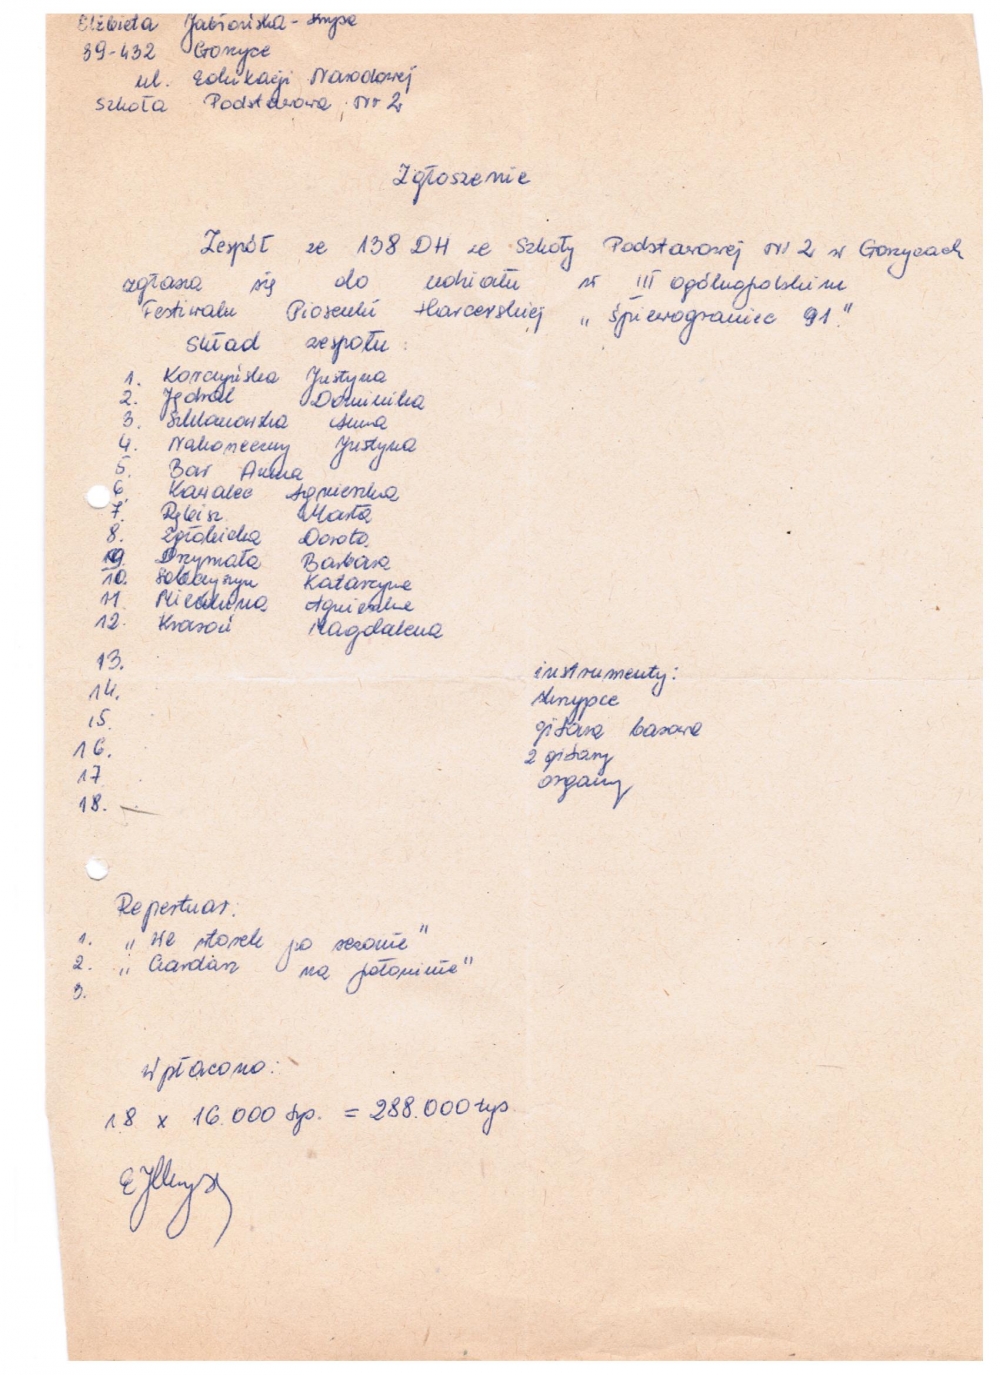 Elżbieta Jabłońska-Krypa
39-432 Gorzyce
ul. Edukacji Narodowej
Szkoła Podstawowa Nr 2
Zgłoszenie
Zespół ze 138 DH ze Szkoły Podstawowej Nr 2 w Gorzycach
zgłasza się do udziału w III ogólnopolskim
Festiwalu Piosenki Harcerskiej „Śpiewograniec 91."
Skład zespołu:
1. Karczyńska Justyna
2. Jędral Dominika
3. Szklanowska Anna
4. Nakoneczny Justyna
5. Bar Anna
6. Kawalec Agnieszka
7. Rębisz Marta
8. Zgłobicka Dorota
9. Drzymała Barbara
10. Katarzyna
11. Agnieszka
12. Krasoń Magdalena
13.
14.
15.
16.
17
18. —
instrumenty:
skrzypce
gitara basowa
2 gitary
organy
Repertuar:
1. „We po sezonie"
2. „Czardasz na połoninie"
3.
Wpłacono:
18 x 16.000 tys. = 288.000 tys